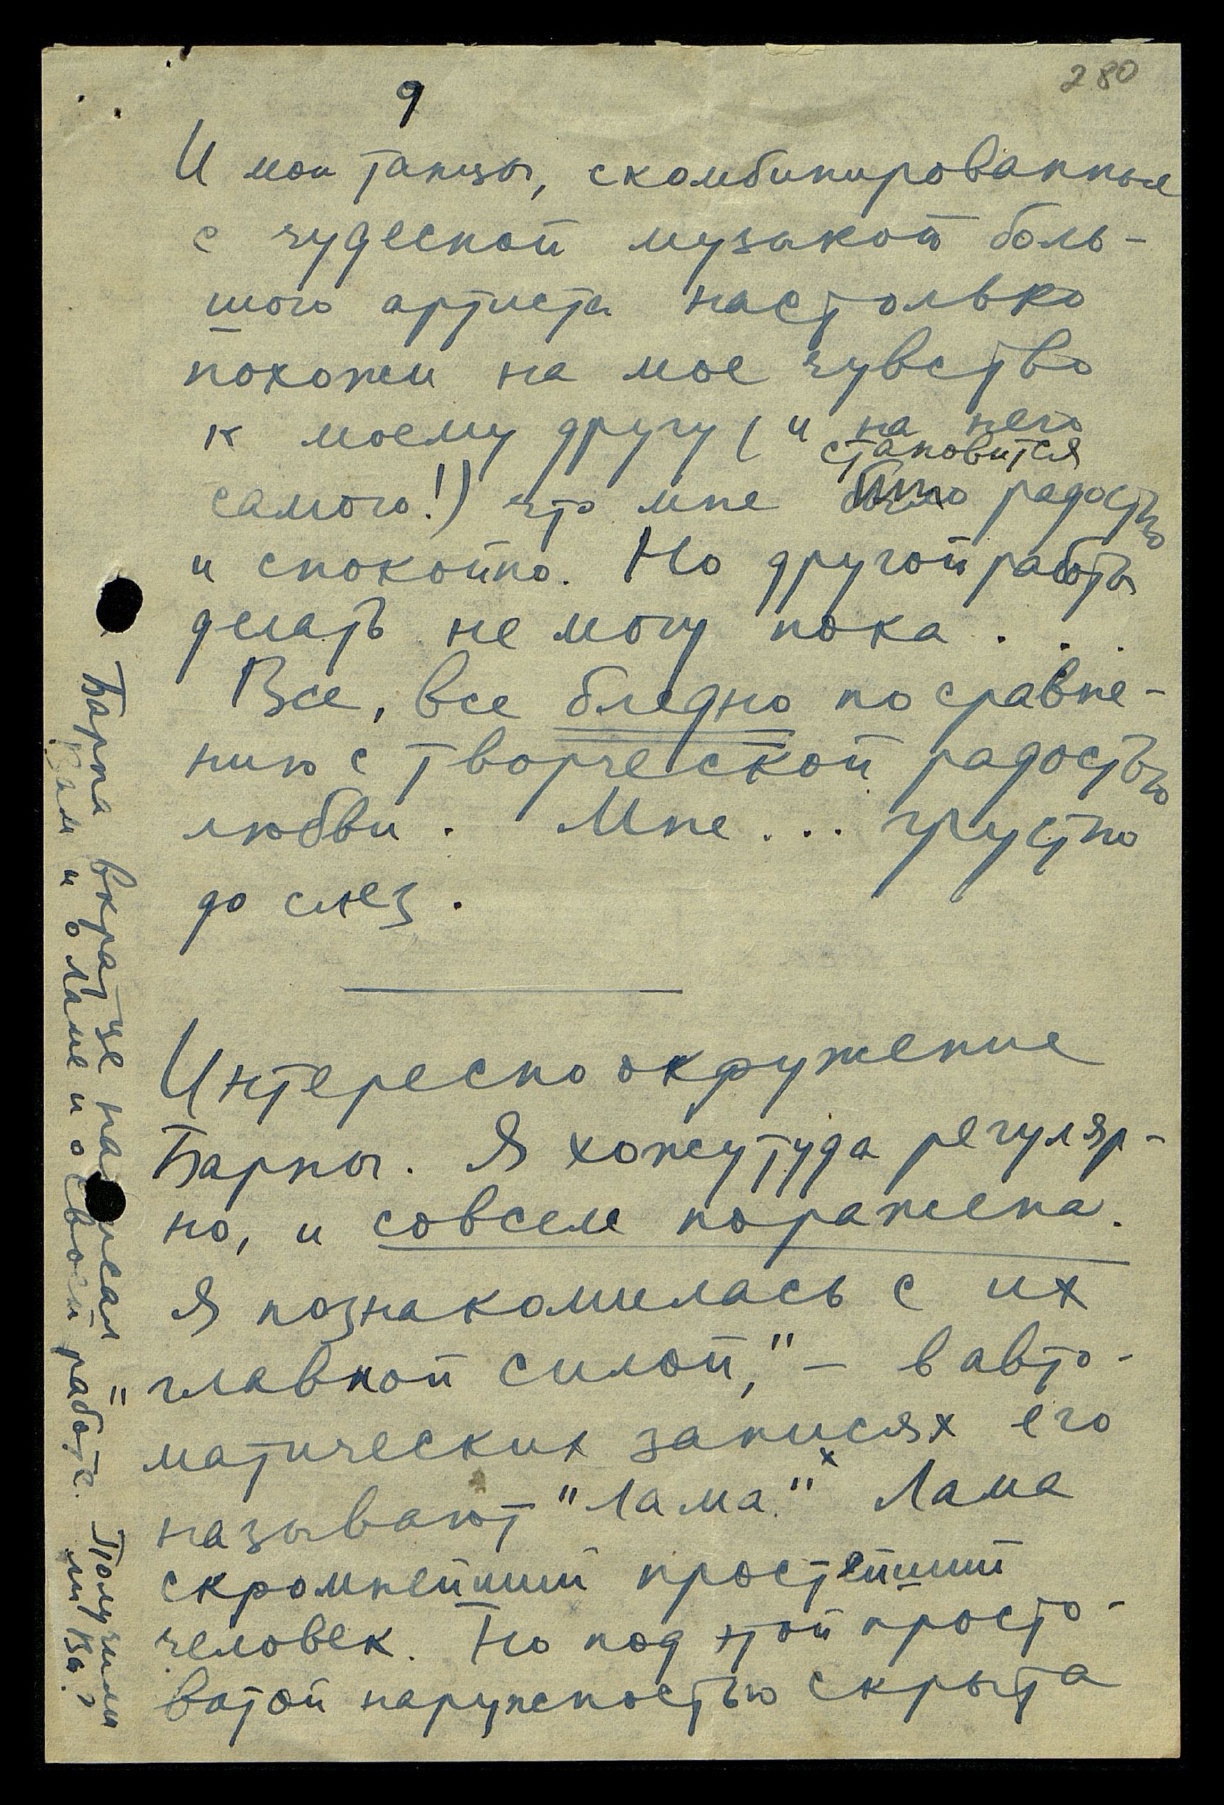 280
9
И мои танцы, скомбинированные
с чудесной музыкой боль-
шого артиста настолько
похожи на мое чувство
к моему другу (и на него
самого!) что мне становится радостно
и спокойно. Но другой работы
делать не могу пока . . .
Все, все бледно по сравне-
нию с творческой радостью
любви. Мне ... грустно
до слез.
Интересно окружение
Барны. Я хожу туда регуляр-
но, и совсем поражена.
Я познакомилась с их
главной силой," – в авто-
матических записях его
называют "Лама."х Лама
скромнейший простейший
человек. Но под этой просто-
ватой наружностью скрыта
Барна вкратце написал "
Вам и о Ламе и о своей работе. Получили
ли Вы?